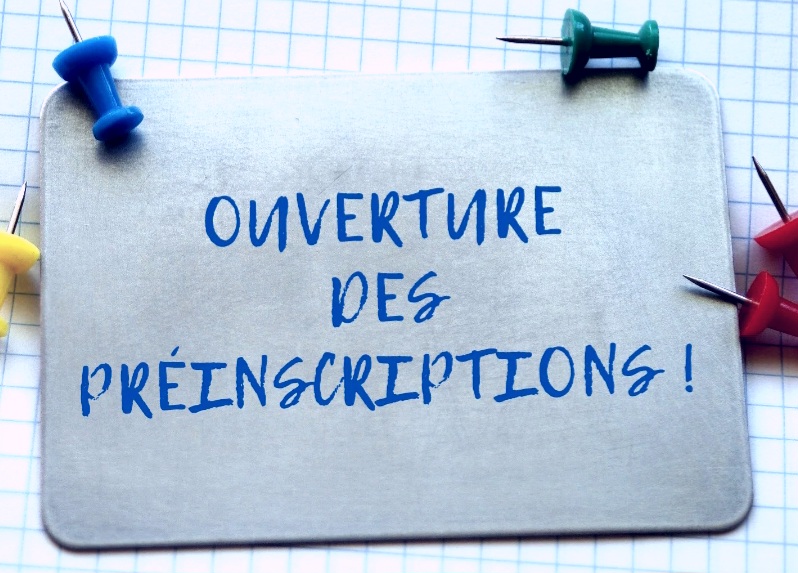 OUVERTURE
DES
PRÉINSCRIPTIONS !